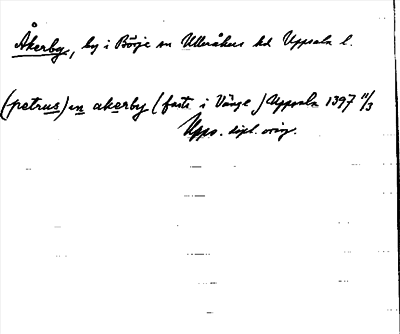 Åkerby, by i Börje sn Ulleråkers hd Uppsala l.
(petrus) en akerby (faste i Vänge) Uppsala 1397 11/3
Upps. dipl. orig.